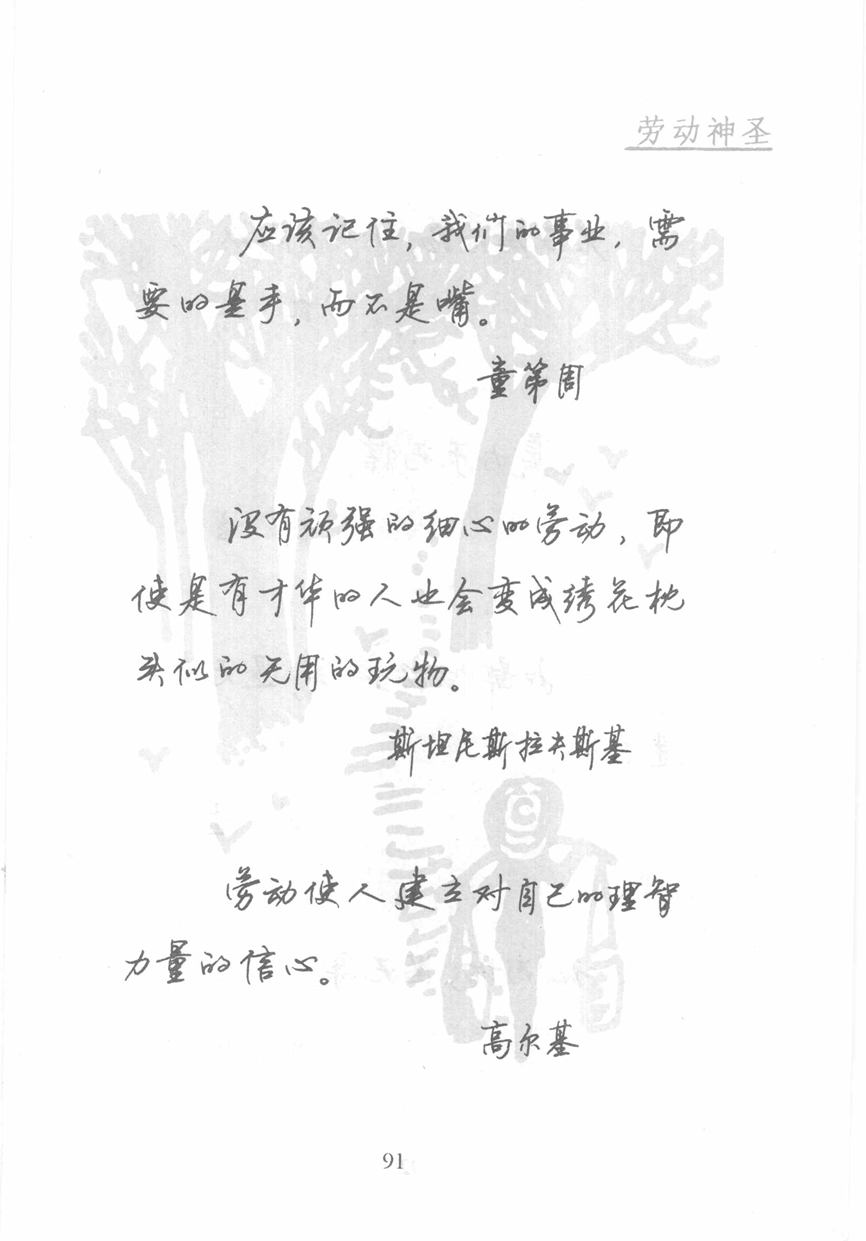 劳动神圣
应该记住，我们的事业，需
要的是手，而不是嘴。
童第周
没有顽强的细心的劳动，即
使是有才华的人也会变成绣花枕
头似的无用的玩物。
斯坦尼斯拉夫斯基
劳动使人建立对自己的理智
力量的信心。
高尔基
91